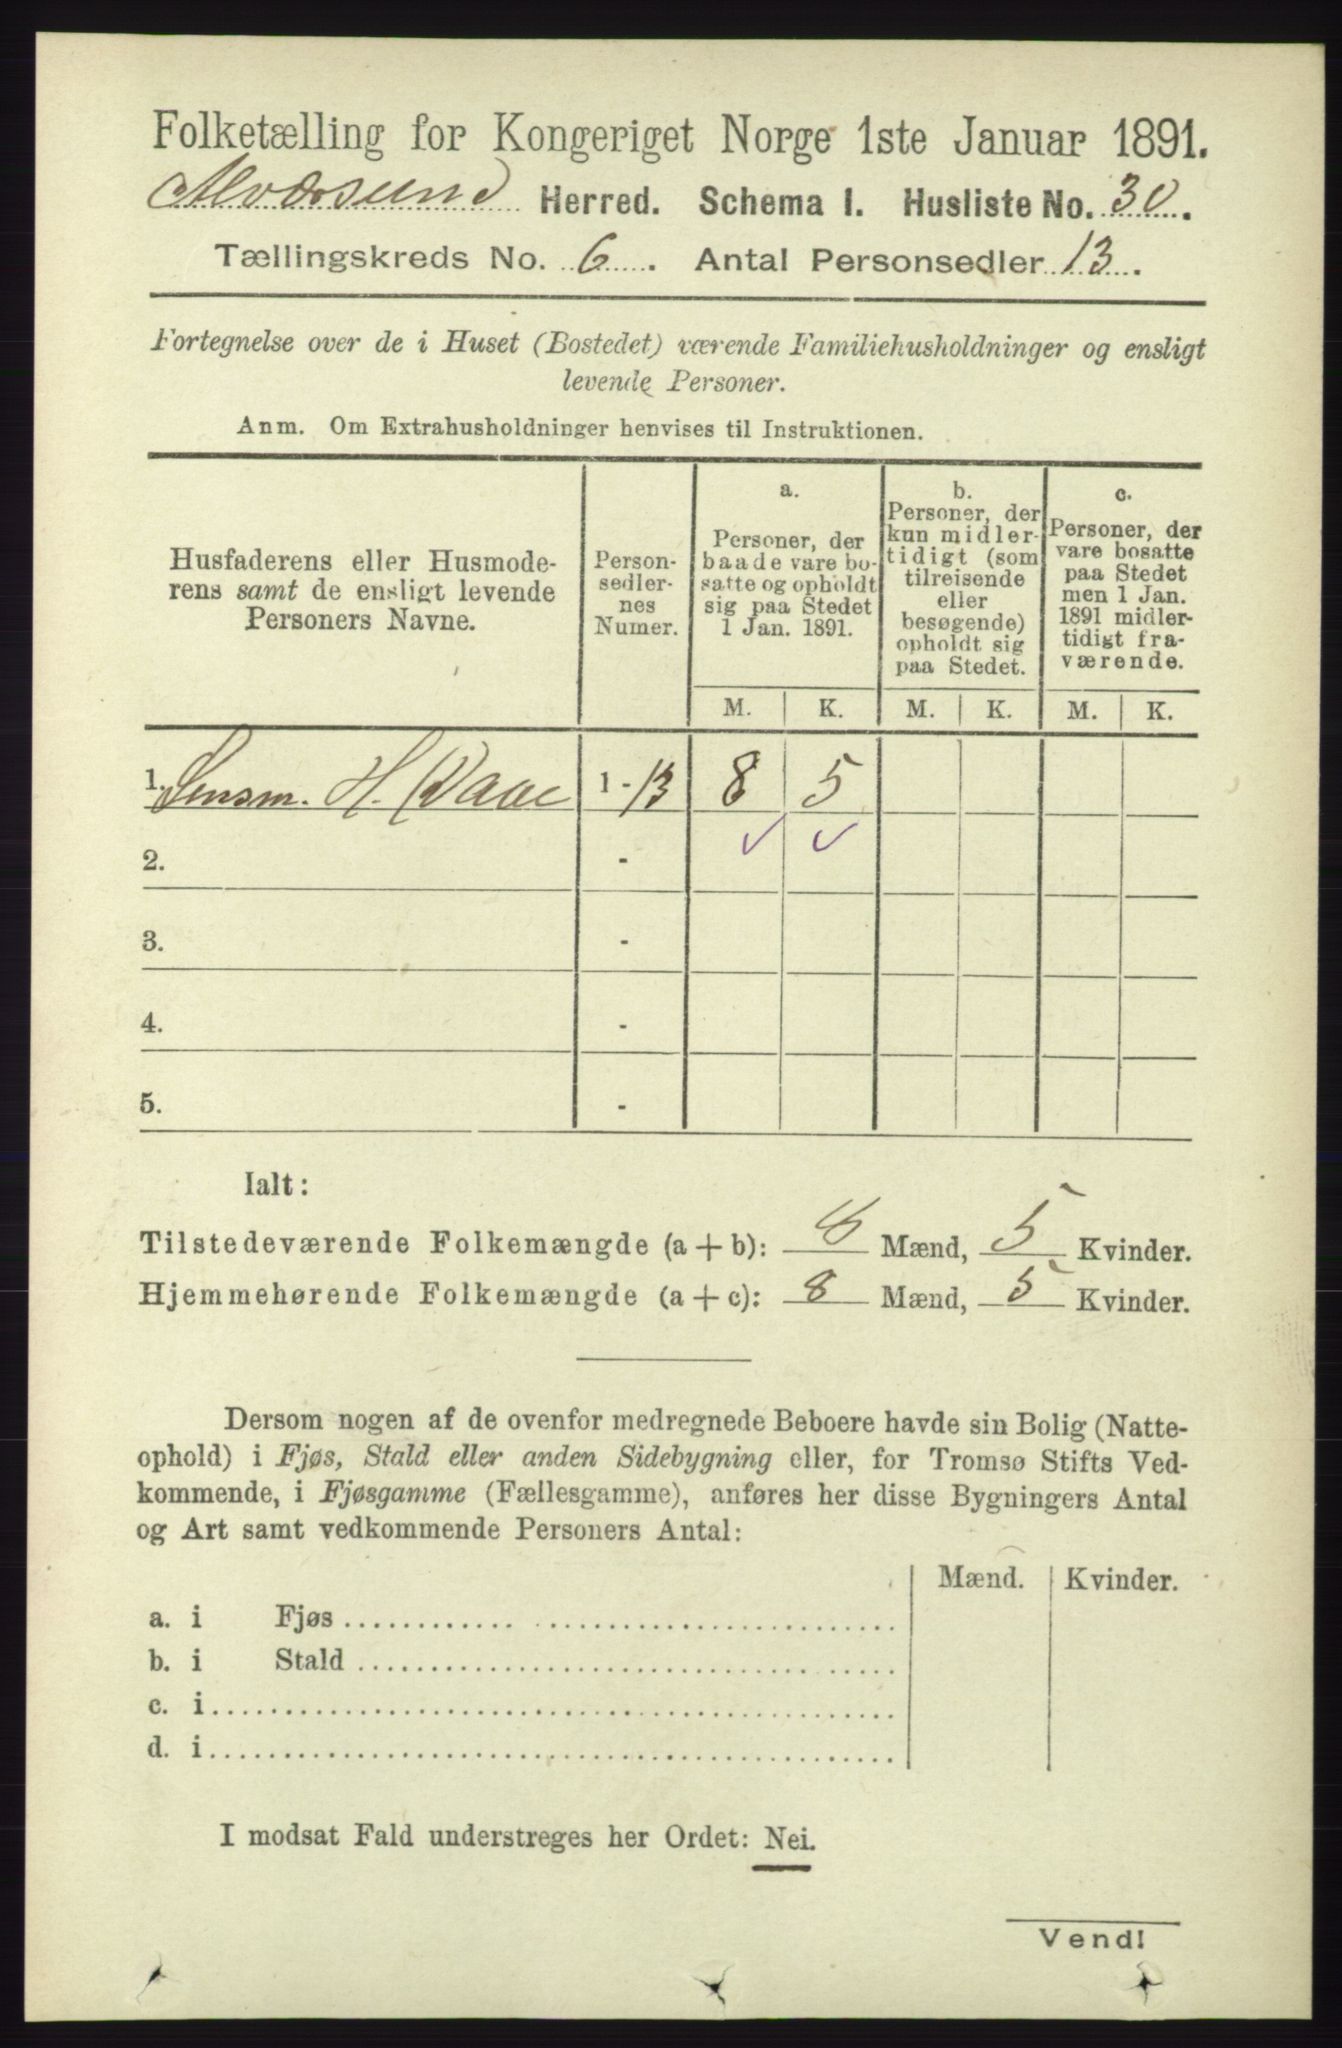 Folketælling for Kongeriget Norge 1ste Januar 1891.
Alværsund Herred. Schema I. Husliste No. 30.
Tællingskreds No. 6. Antal Personsedler 13.
Fortegnelse over de i Huset (Bostedet) værende Familiehusholdninger og ensligt
levende Personer.
Anm. Om Extrahusholdninger henvises til Instruktionen.
Husfaderens eller Husmode-
rens samt de ensligt levende
Personers Navne.
Person-
sedler-
nes
Numer.
a.
Personer, der
baade vare bo-
satte og opholdt
sig paa Stedet
1 Jan. 1891.
b.
Personer, der
kun midler-
tidigt (som
tilreisende
eller
besøgende)
opholdt sig
paa Stedet.
c.
Personer, der
vare bosatte
paa Stedet
men 1 Jan.
1891 midler-
tidigt fra-
værende.
M. K. M. K. M. K.
1. Lensm. H. Daae 1 - 13 8 5
2. -
3. -
4. -
5. -
Ialt:
Tilstedeværende Folkemængde (a + b): 8 Mænd, 5 Kvinder.
Hjemmehørende Folkemængde (a + c): 8 Mænd, 5 Kvinder.
Dersom nogen af de ovenfor medregnede Beboere havde sin Bolig (Natte-
ophold) i Fjøs, Stald eller anden Sidebygning eller, for Tromsø Stifts Ved-
kommende, i Fjøsgamme (Fællesgamme), anføres her disse Bygningers Antal
og Art samt vedkommende Personers Antal:
Mænd. Kvinder.
a. i Fjøs
b. i Stald
c. i
d. i
I modsat Fald understreges her Ordet: Nei.
Vend!